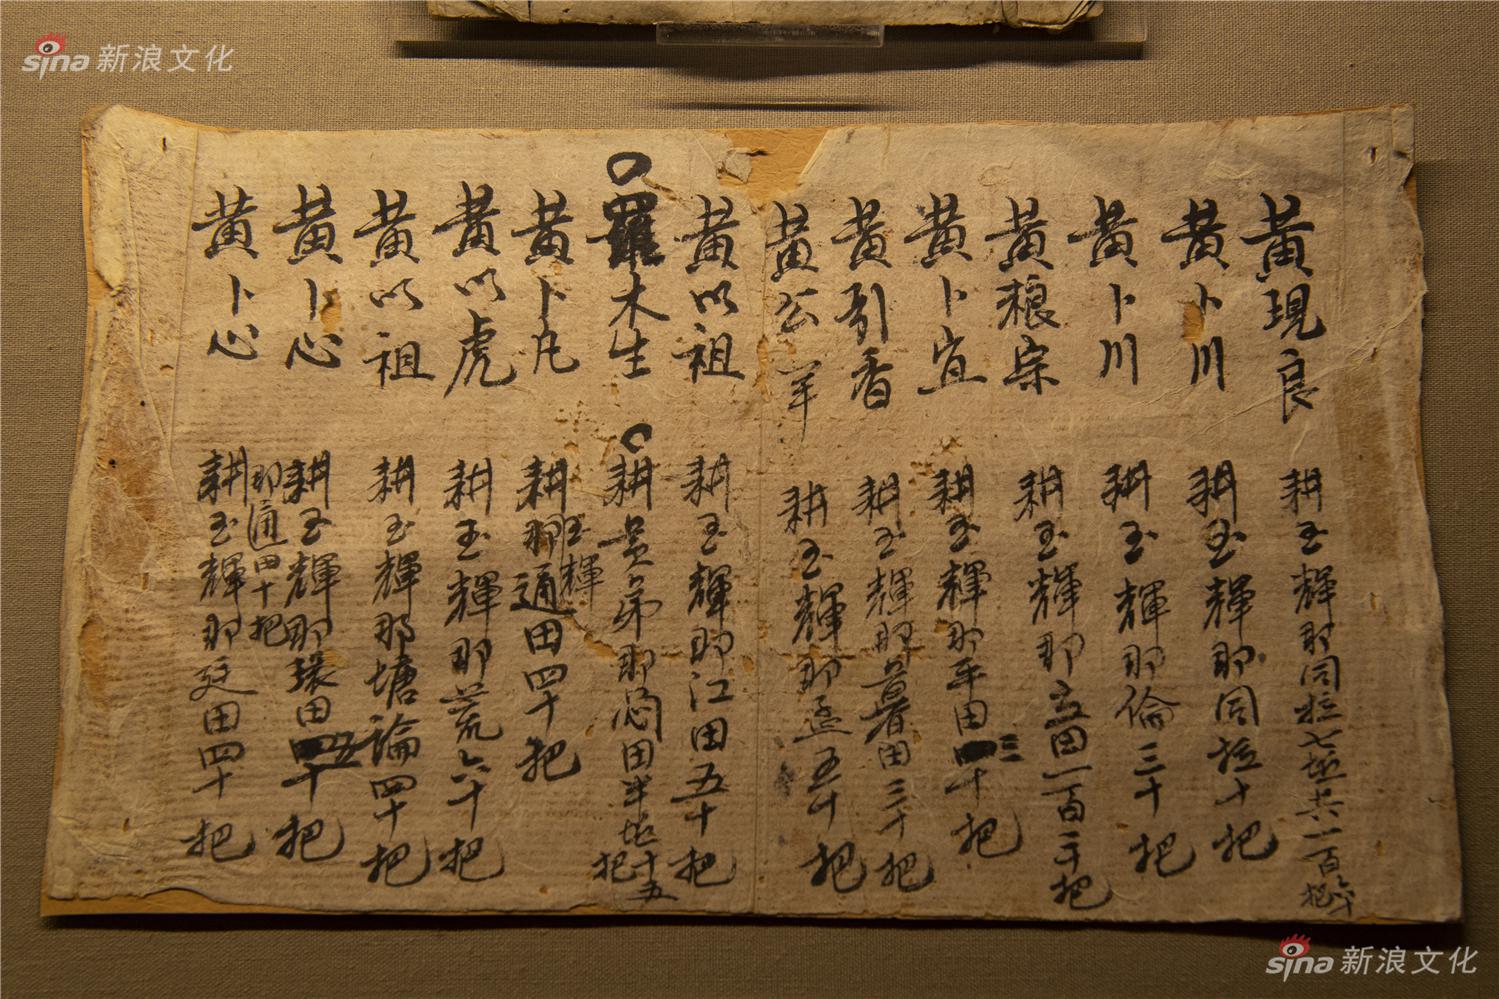 sina 新浪文化
黃現良 耕玉輝那同垃七垃共一百六十把
黃卜川 耕玉輝那同垃十把
黃卜川 耕玉輝那倫三十把
黃粮宗 耕玉輝那田一百二十把
黃卜宜 耕玉輝那平田三十把
黃引香 耕玉輝那暑田三十把
黃公羊 耕玉輝那五十把
黃以祖 耕玉輝那江田五十把
羅木生 耕那田半垃十五把
黃卜凡 耕玉輝那通田四十把
黃以虎 耕玉輝那荒六十把
黃以祖 耕玉輝那塘論四十把
黃卜心 耕玉輝那環田五十把
那通四十把
黃卜心 耕玉輝那廷田四十把
sina 新浪文化